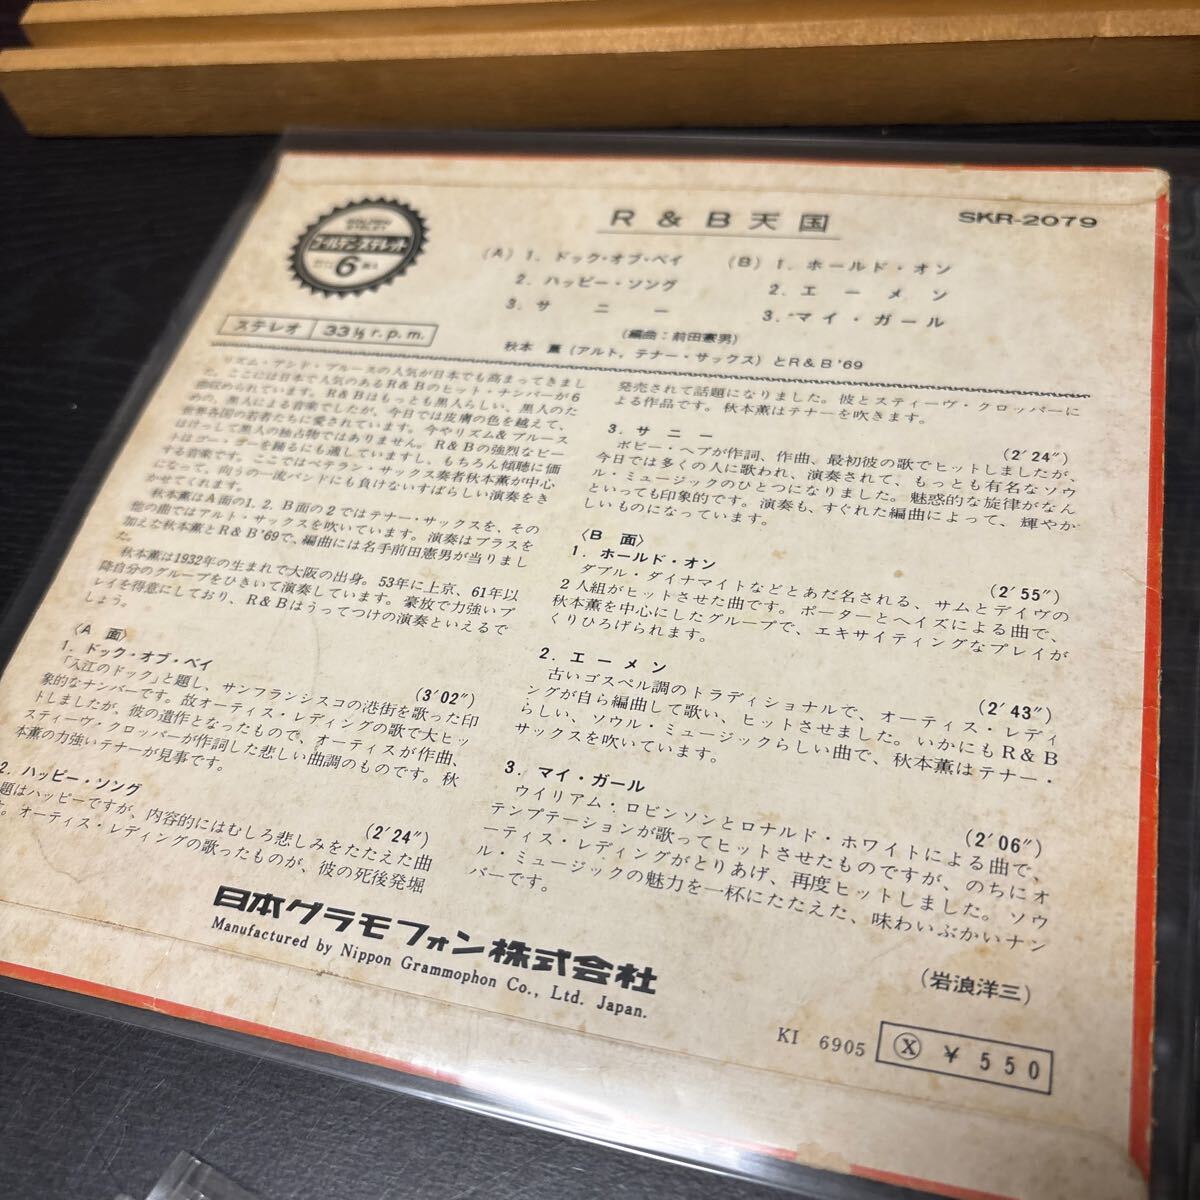 ゴールデン・ステレット
6
R&B天国
SKR-2079
(A) 1. ドック・オブ・ベイ
2. ハッピー・ソング
3. サニー
(B) 1. ホールド・オン
2. エーメン
3. マイ・ガール
(編曲:前田憲男)
秋本 薫(アルト,テナー・サックス)とR&B'69
ステレオ 33⅓ r.p.m.
リズム・アンド・ブルースの人気が日本でも高まってきまし
た。ここには日本で人気のあるR&Bのヒット・ナンバーが6
曲収められています。R&Bはもっとも黒人らしい、黒人のた
めの、黒人による音楽でしたが、今日では皮膚の色を越えて、
世界各国の若者たちに愛されています。今やリズム&ブルース
はけっして黒人の独占物ではありません。R&Bの強烈なビー
トはゴー・ゴーを踊るにも適していますし、もちろん傾聴に価
する音楽です。ここではベテラン・サックス奏者秋本薫が中心
になって、向うの一流バンドにも負けないすばらしい演奏をき
かせてくれます。
秋本薫はA面の1.2.B面の2ではテナー・サックスを、その
他の曲ではアルト・サックスを吹いています。演奏はブラスを
加えた秋本薫とR&B'69で、編曲には名手前田憲男が当りまし
た。
秋本薫は1932年の生まれで大阪の出身。53年に上京、61年以
降自分のグループをひきいて演奏しています。豪放で力強いプ
レイを得意にしており、R&Bはうってつけの演奏といえるで
しょう。
〈A 面〉
1. ドック・オブ・ベイ (3'02")
「入江のドック」と題し、サンフランシスコの港街を歌った印
象的なナンバーです。故オーティス・レディングの歌で大ヒッ
トしましたが、彼の遺作となったもので、オーティスが作曲、
スティーヴ・クロッパーが作詞した悲しい曲調のものです。秋
本薫の力強いテナーが見事です。
2. ハッピー・ソング (2'24")
題はハッピーですが、内容的にはむしろ悲しみをたたえた曲
。オーティス・レディングの歌ったものが、彼の死後発堀
発売されて話題になりました。彼とスティーヴ・クロッパーに
よる作品です。秋本薫はテナーを吹きます。
3. サニー (2'24")
ボビー・ヘブが作詞、作曲、最初彼の歌でヒットしましたが、
今日では多くの人に歌われ、演奏されて、もっとも有名なソウ
ル・ミュージックのひとつになりました。魅惑的な旋律がなん
といっても印象的です。演奏も、すぐれた編曲によって、輝やか
しいものになっています。
〈B 面〉
1. ホールド・オン (2'55")
ダブル・ダイナマイトなどとあだ名される、サムとデイヴの
2人組がヒットさせた曲です。ポーターとヘイズによる曲で、
秋本薫を中心にしたグループで、エキサイティングなプレイが
くりひろげられます。
2. エーメン (2'43")
古いゴスペル調のトラディショナルで、オーティス・レディ
ングが自ら編曲して歌い、ヒットさせました。いかにもR&B
らしい、ソウル・ミュージックらしい曲で、秋本薫はテナー・
サックスを吹いています。
3. マイ・ガール (2'06")
ウイリアム・ロビンソンとロナルド・ホワイトによる曲で、
テンプテーションが歌ってヒットさせたものですが、のちにオ
ーティス・レディングがとりあげ、再度ヒットしました。ソウ
ル・ミュージックの魅力を一杯にたたえた、味わいぶかいナン
バーです。
(岩浪洋三)
日本グラモフォン株式会社
Manufactured by Nippon Grammophon Co., Ltd. Japan.
KI 6905
Ⓧ ¥550